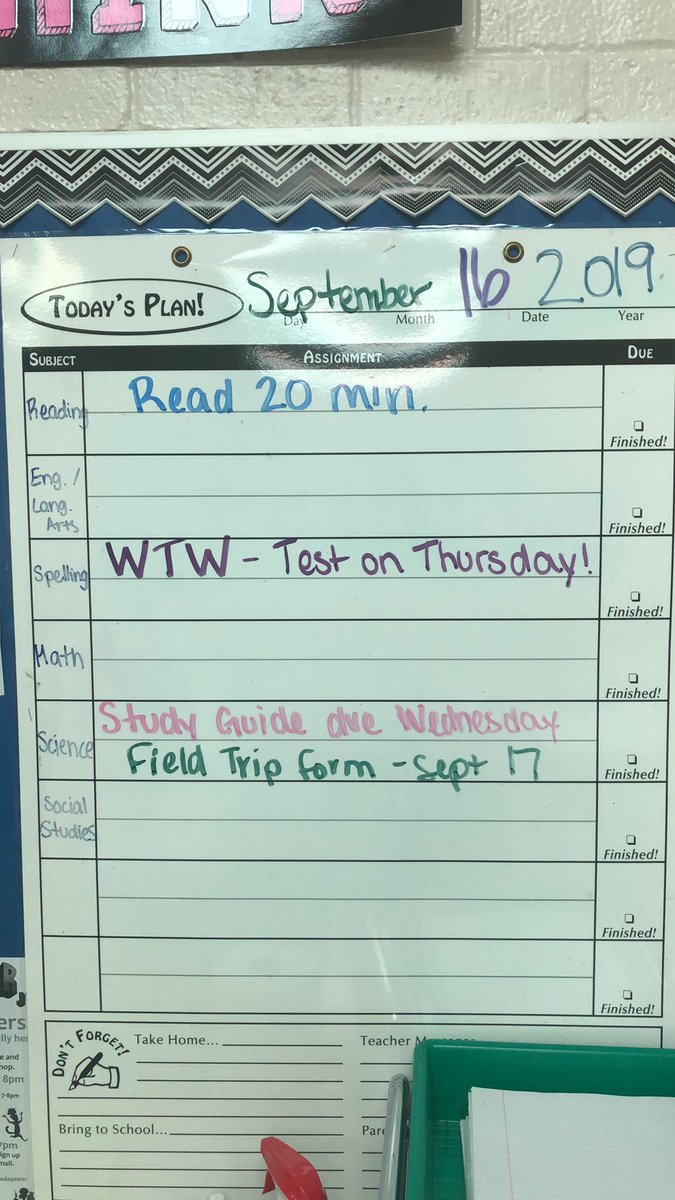 September 16 2019
TODAY'S PLAN!
Day Month Date Year
SUBJECT ASSIGNMENT DUE
Reading Read 20 min.
Finished!
Eng. /
Lang.
Arts
Finished!
Spelling WTW - Test on Thursday!
Finished!
Math
Finished!
Science Study Guide due Wednesday
Field Trip form - Sept 17
Finished!
Social
Studies
Finished!
Finished!
Finished!
DON'T FORGET!
Take Home... Teacher
Bring to School...
8pm
7-8pm